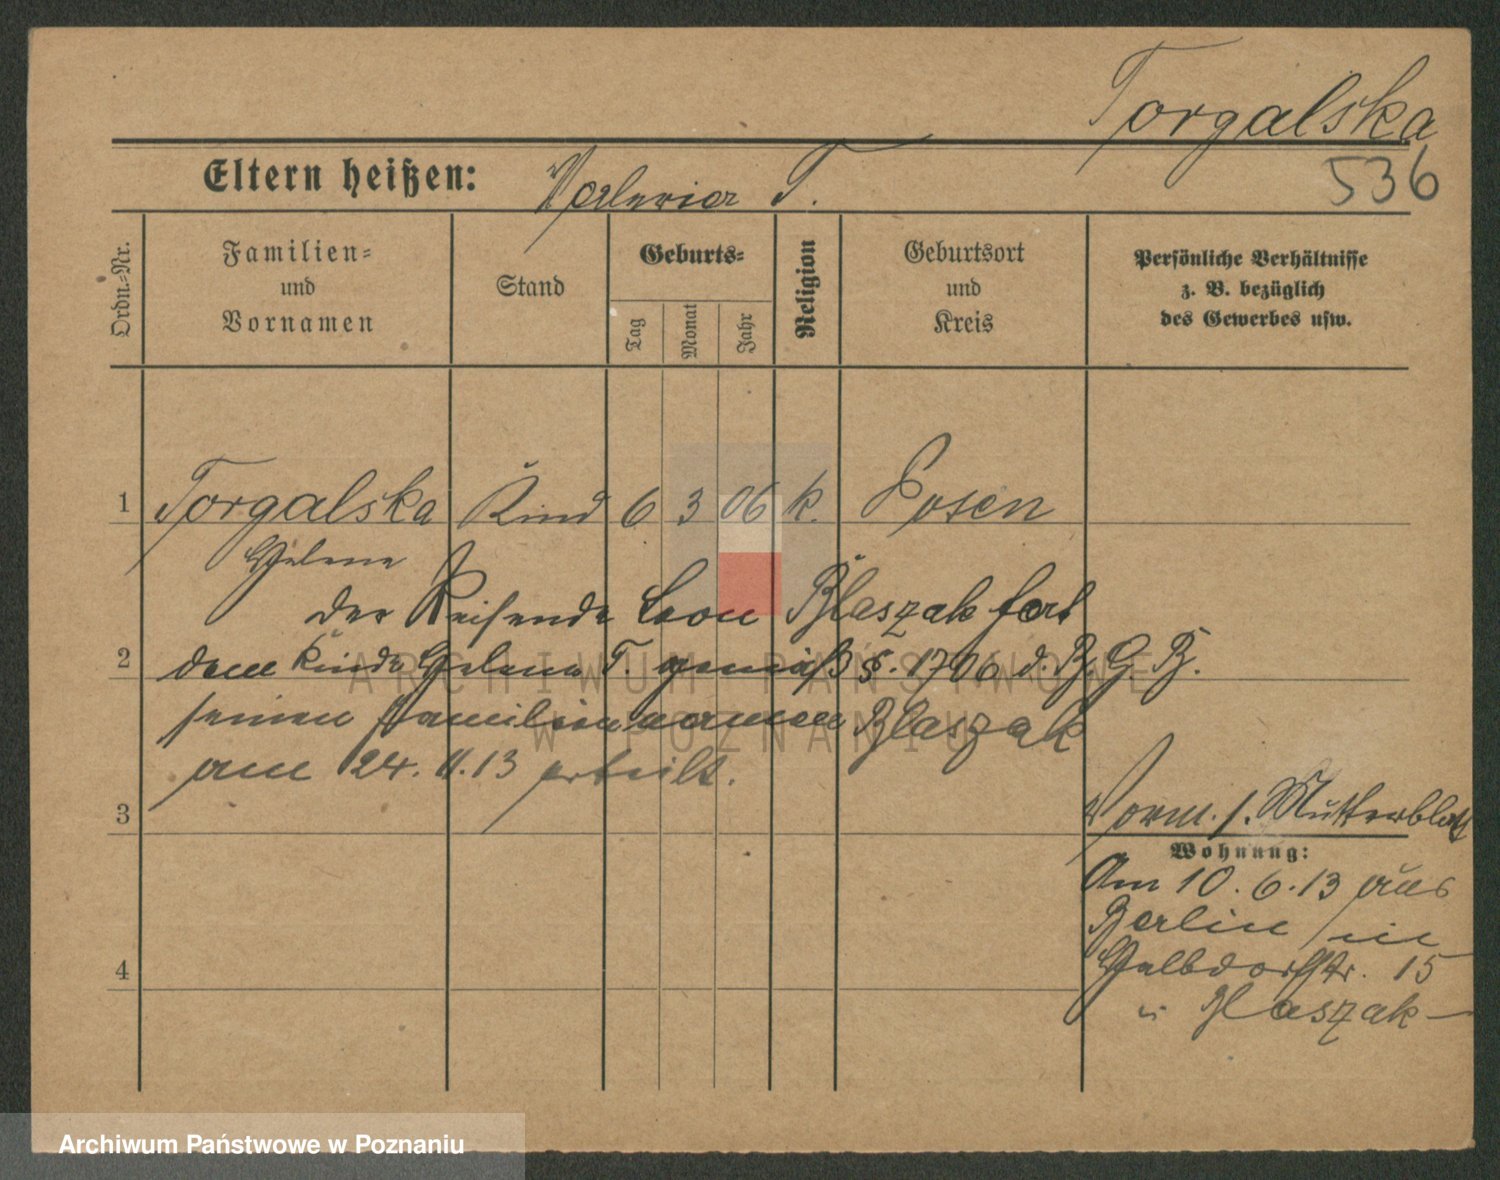 Torgalska
536
Eltern heißen: Valeria T.
Ordn.-Nr.
Familien-
und
Vornamen
Stand
Geburts-
Tag
Monat
Jahr
Religion
Geburtsort
und
Kreis
Persönliche Verhältnisse
z. B. bezüglich
des Gewerbes usw.
1 Torgalska Kind 6 3 06 k. Posen
Helene
Der Reisende Leon Blaszak hat
2 dem Kinde Helene T. gemäß §. 1706 d. B. G. B.
seinen Familiennamen Blaszak
am 24.11.13 erteilt.
3
Vorm. s. Mutterblatt
Wohnung:
Am 10.6.13 aus
Berlin in
4
15
Blaszak
ARCHIWUM PAŃSTWOWE
W POZNANIU
Archiwum Państwowe w Poznaniu